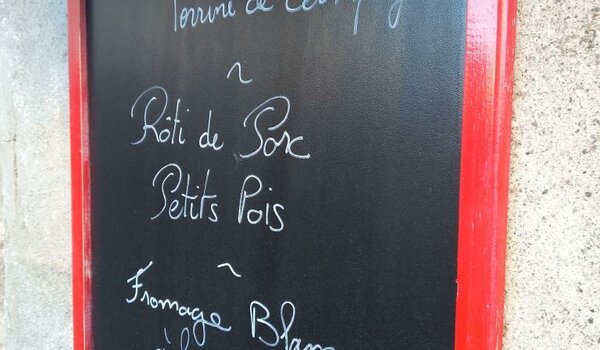 Terrine de Campag
~
Rôti de Porc
Petits Pois
~
Fromage Blanc